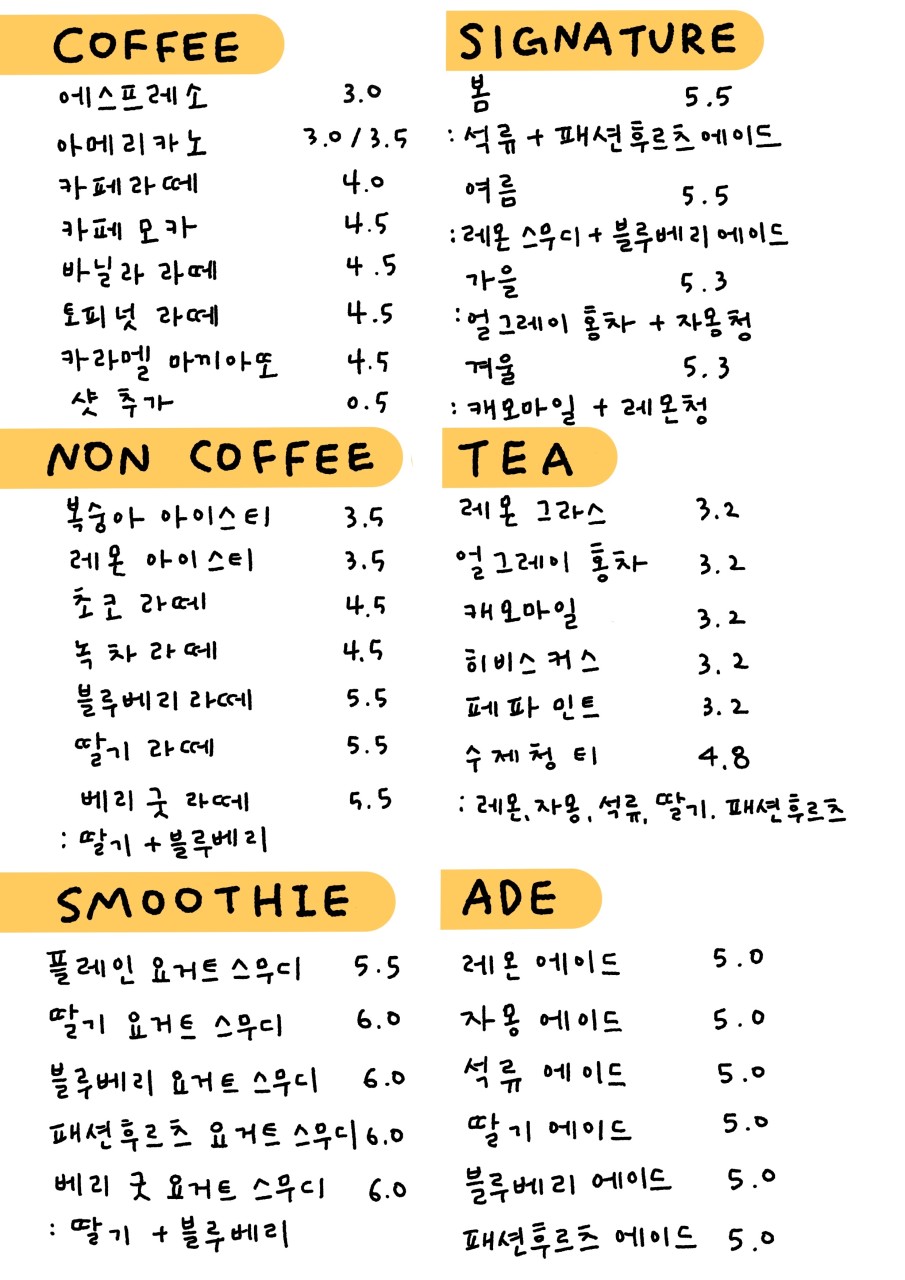 COFFEE
에스프레소 3.0
아메리카노 3.0/3.5
카페라떼 4.0
카페 모카 4.5
바닐라 라떼 4.5
토피넛 라떼 4.5
카라멜 마끼아또 4.5
샷 추가 0.5
SIGNATURE
봄 5.5
: 석류 + 패션후르츠에이드
여름 5.5
: 레몬 스무디 + 블루베리에이드
가을 5.3
: 얼그레이 홍차 + 자몽청
겨울 5.3
: 캐모마일 + 레몬청
NON COFFEE
복숭아 아이스티 3.5
레몬 아이스티 3.5
초코 라떼 4.5
녹차라떼 4.5
블루베리라떼 5.5
딸기 라떼 5.5
베리굿 라떼 5.5
: 딸기 + 블루베리
TEA
레몬 그라스 3.2
얼그레이 홍차 3.2
캐모마일 3.2
히비스커스 3.2
페파민트 3.2
수제청 티 4.8
: 레몬, 자몽, 석류, 딸기. 패션후르츠
SMOOTHIE
플레인 요거트 스무디 5.5
딸기 요거트 스무디 6.0
블루베리 요거트 스무디 6.0
패션후르츠 요거트 스무디 6.0
베리 굿 요거트 스무디 6.0
: 딸기 + 블루베리
ADE
레몬 에이드 5.0
자몽 에이드 5.0
석류 에이드 5.0
딸기 에이드 5.0
블루베리 에이드 5.0
패션후르츠 에이드 5.0